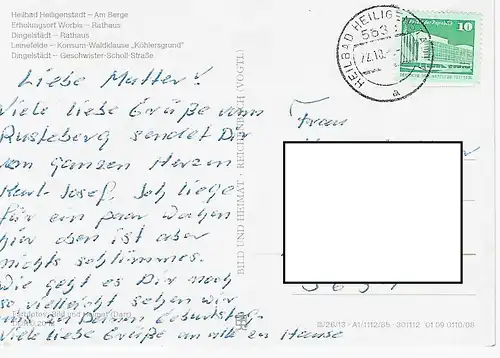 Heilbad Heiligenstadt – Am Berge
Erholungsort Worbis – Rathaus
Dingelstädt – Rathaus
Leinefelde – Konsum-Waldklause „Köhlersgrund"
Dingelstädt – Geschwister-Scholl-Straße
Liebe Mutter!
Viele liebe Grüße vom
Rusteberg sendet Dir
vom ganzen Herzen
Karl-Josef, Ich liege
für ein paar Wochen
hier oben ist aber
nichts schlimmes.
Wie geht es Dir noch
so vielleicht sehen wir
uns zu Deinen Geburtstag.
Viele liebe Grüße an alle zu Hause
Bild und Heimat
BILD UND HEIMAT · REICHENBACH (VOGTL)
HEILBAD HEILIGENSTADT
563
a
10
Frau
III/26/13 · A1/1112/85 · 301112 01 09 0110/08